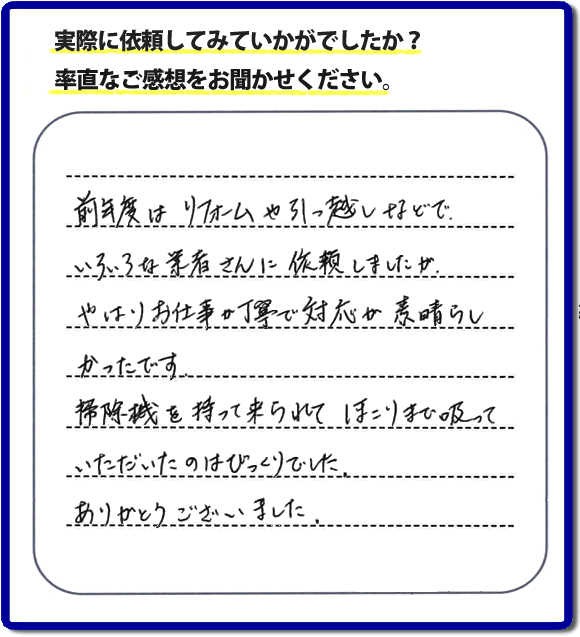 実際に依頼してみていかがでしたか？
率直なご感想をお聞かせください。
前年度は リフォームや引っ越しなどで、
いろいろな業者さんに依頼しましたが、
やはりお仕事が丁寧で対応が素晴らし
かったです。
掃除機を持って来られて ほこりまで吸って
いただいたのはびっくりでした。
ありがとうございました。